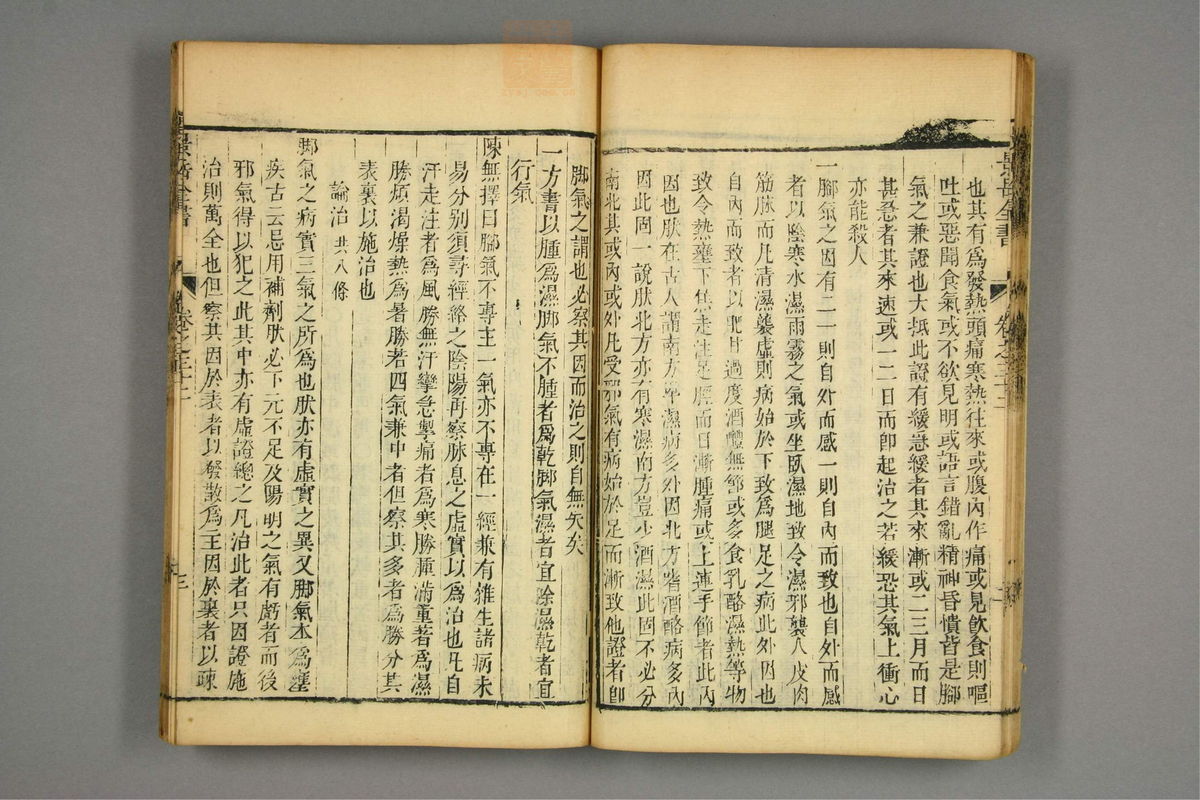 景岳全書
卷之三十二
也其有為發熱頭痛寒熱往來或腹內作痛或見飲食則嘔
吐或惡聞食氣或不欲見明或語言錯亂精神昏憒皆是腳
氣之兼證也大抵此證有緩急緩者其來漸或二三月而日
甚急者其來速或一二日而即起治之若緩恐其氣上衝心
亦能殺人
一腳氣之因有二一則自外而感一則自內而致也自外而感
者以陰寒水濕雨霧之氣或坐臥濕地致令濕邪襲人皮肉
筋脉而凡清濕襲虛則病始於下致為腿足之病此外因也
自內而致者以肥甘過度酒醴無節或多食乳酪濕熱等物
致令熱壅下焦走注足脛而日漸腫痛或上連手節者此內
因也肰在古人謂南方卑濕病多外因北方嗜酒酪病多內
因此固一說肰北方亦有寒濕南方豈少酒濕此固不必分
南北其或內或外凡受邪氣有病始於足而漸致他證者卽
腳氣之謂也必察其因而治之則自無失矣
一方書以腫為濕脚氣不腫者為乾脚氣濕者宜除濕乾者宜
行氣
陳無擇曰腳氣不專主一氣亦不專在一經兼有雜生諸病未
易分別須尋經絡之陰陽再察脉息之虛實以為治也凡自
汗走注者為風勝無汗攣急掣痛者為寒勝腫滿重著為濕
勝煩渴燥熱為暑勝若四氣兼中者但察其多者為勝分其
表裏以施治也
論治 共八條
脚氣之病實三氣之所為也肰亦有虛實之異又脚氣本為壅
疾古云忌用補劑肰必下元不足及陽明之氣有虧者而後
邪氣得以犯之此其中亦有虛證總之凡治此者只因證施
治則萬全也但察其因於表者以發散為主因於裏者以疎
景岳全書
卷之三十二
三